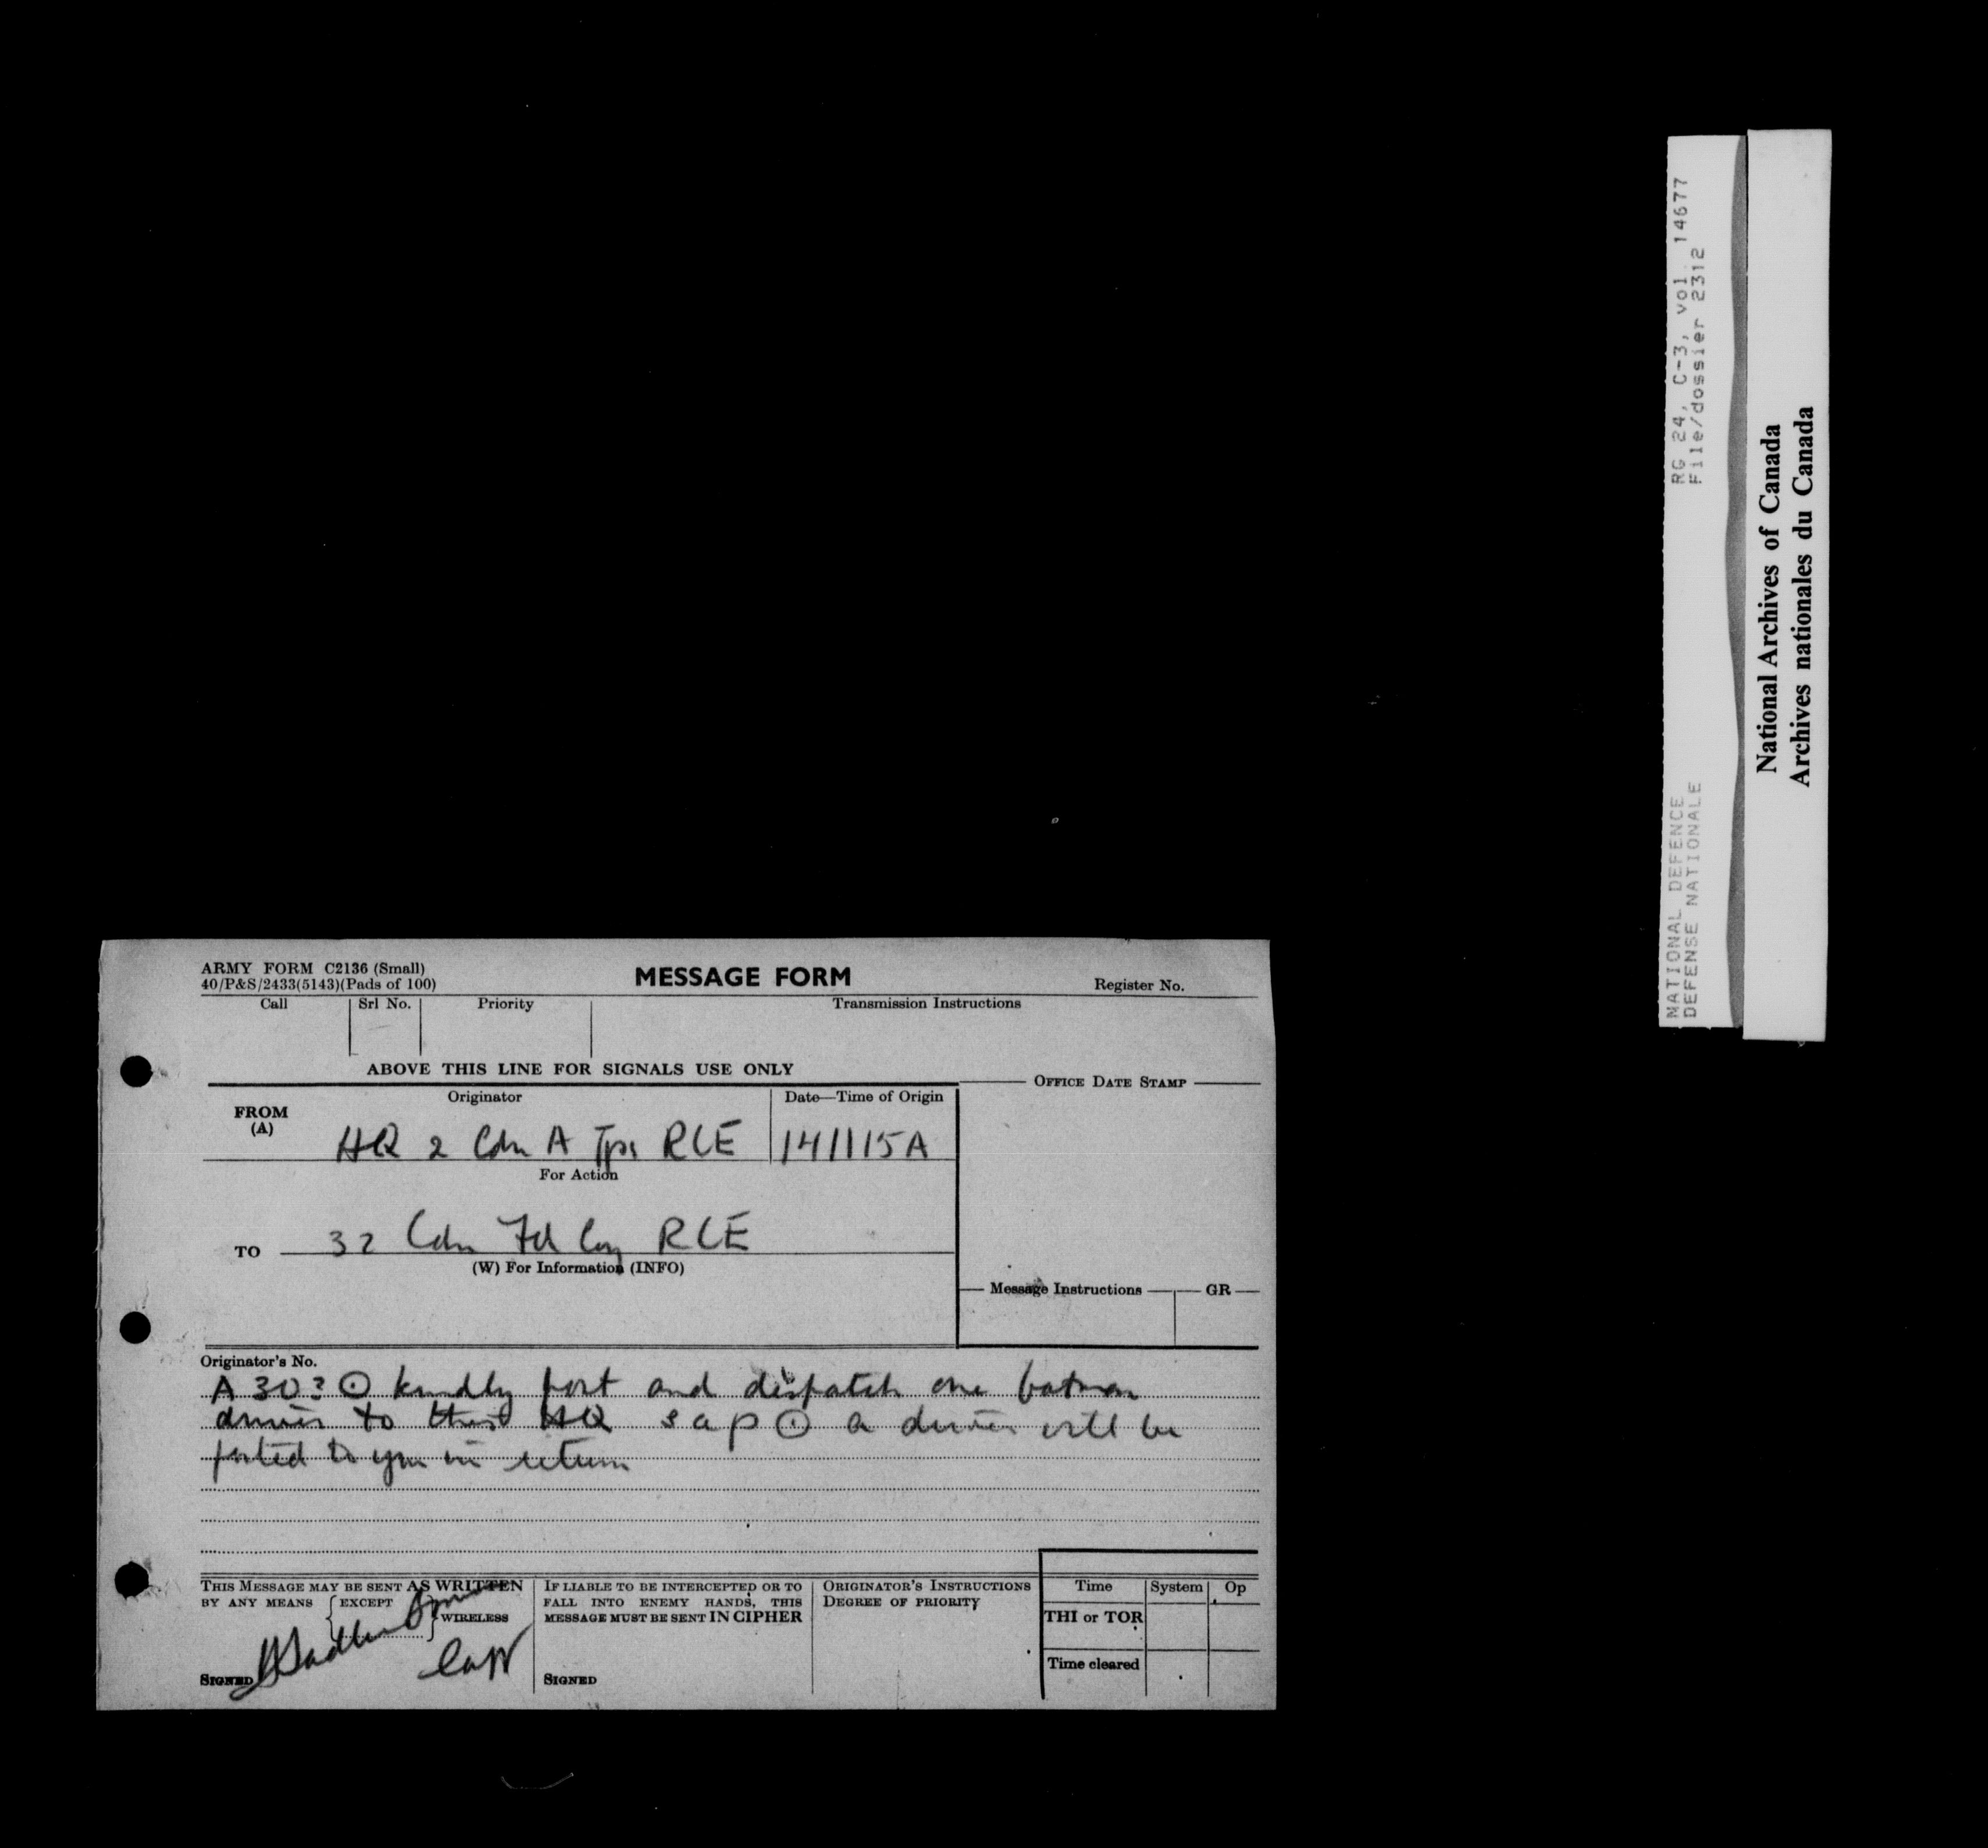 ARMY FORM C2136 (Small)
40/P&S/2433(5143)(Pads of 100)
MESSAGE FORM
Register No.
Call Srl No. Priority Transmission Instructions
ABOVE THIS LINE FOR SIGNALS USE ONLY
OFFICE DATE STAMP
FROM (A) Originator Date—Time of Origin
HQ 2 Cdn A Tps RCE 141115A
For Action
TO 32 Cdn Fd Coy RCE
(W) For Information (INFO)
Message Instructions GR
Originator's No.
A 303 ⊙ kindly post and dispatch one batman
driver to this HQ s a p ⊙ a driver will be
posted to you in return
THIS MESSAGE MAY BE SENT AS WRITTEN
BY ANY MEANS { EXCEPT } WIRELESS
SIGNED Capt
IF LIABLE TO BE INTERCEPTED OR TO
FALL INTO ENEMY HANDS, THIS
MESSAGE MUST BE SENT IN CIPHER
SIGNED
ORIGINATOR'S INSTRUCTIONS
DEGREE OF PRIORITY
Time System Op
THI or TOR
Time cleared
NATIONAL DEFENCE RG 24, C-3, vol. 14677
DEFENSE NATIONALE File/dossier 2312
National Archives of Canada
Archives nationales du Canada